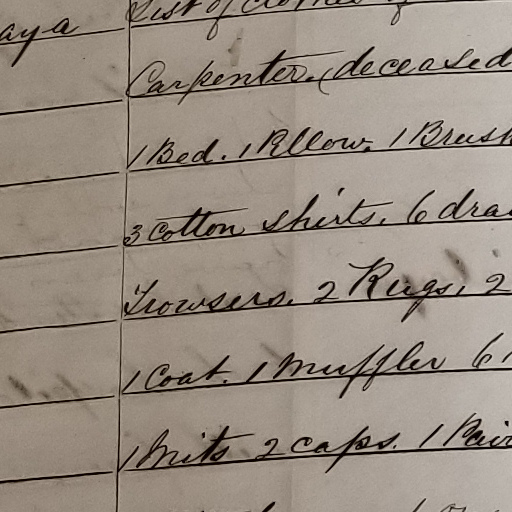 aya List of clothes of
Carpenter. (deceased
1 Bed. 1 Pillow. 1 Brush
3 Cotton shirts. 6 dra
Trowsers. 2 Rugs. 2
1 Coat. 1 Muffler 6
1 Mits 2 caps. 1 Pair